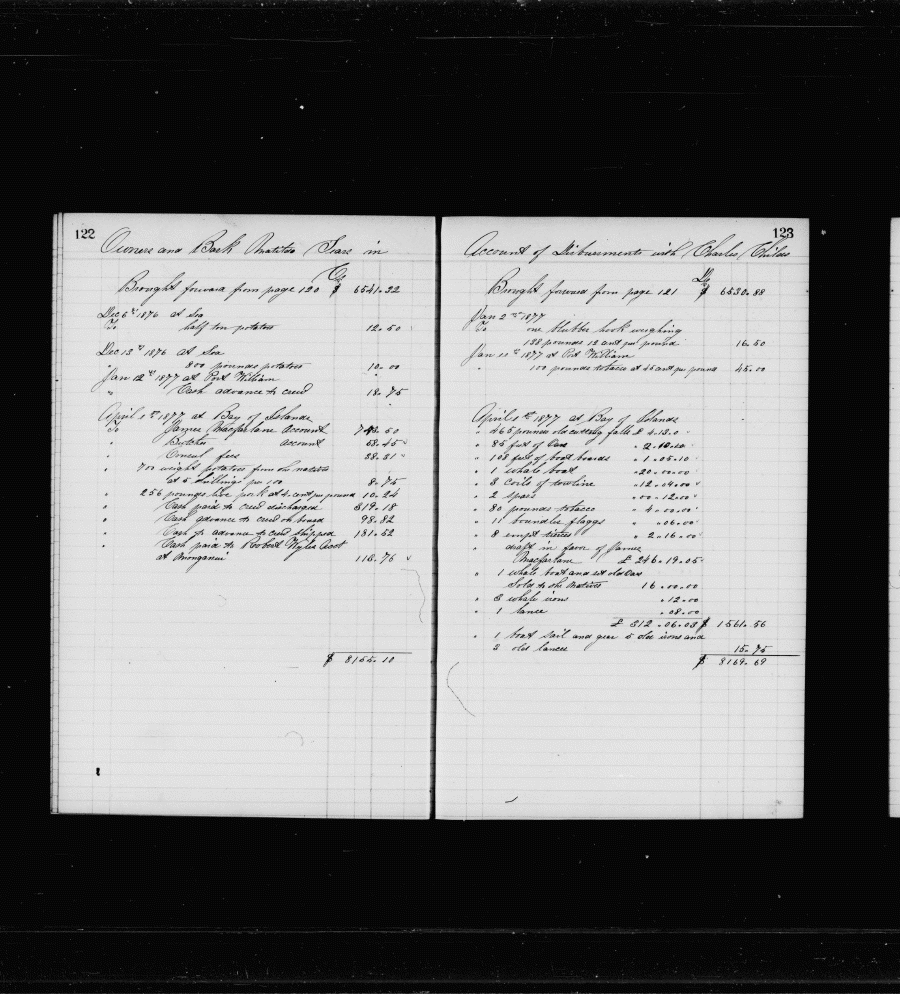 122
Owners and Bark Matilda Sears in
Cr
Brought forward from page 120 $ 6541.32
Dec 6th 1876 at Sea
To half ton potatoes 12.50
Dec 13th 1876 at Sea
" 800 pounds potatoes 10.00
Jan 12th 1877 at Port William
" Cash advance to crew 18.75
April 1st 1877 at Bay of Islands
To James Macfarlane Account
" Butcher Account 53.45
" Consul fees 38.31
" 700 weight potatoes from the natives
at 5 shillings per 100 8.75
" 256 pounds live pork at 4 cent per pound 10.24
" Cash paid to crew discharged 819.18
" Cash advance to crew on board 98.82
" Cash advance to crew shipped 131.52
" Cash paid to Robert Wylie Acct
at Mongonui 118.76
$ 8155.10
123
Account of Disbursments with Charles Childs
Dr
Brought forward from page 121 $ 6530.88
Jan 2nd 1877
To one blubber hook weighing
138 pounds 12 cent per pound 16.50
Jan 11th 1877 at Port William
" 100 pounds tobacco at 45 cent per pound 45.00
April 1st 1877 at Bay of Islands
" 465 pounds old cutting falls £ 4.13.0
" 85 feet of Oars
" 108 feet of boat boards " 1.05.10
" 1 whale boat 20.00.00
" 8 coils of towline 12.04.00
" 2 spars 00.12.00
" 80 pounds tobacco 4.00.00
" 11 boundle flaggs " .06.00
" 8 empt tierces 2.16.00
" draft in favor of James
Macfarlane £ 246.19.05
" 1 whale boat and set old Oars
Sold to the Natives 16.00.00
" 3 whale irons .12.00
" 1 lance .08.00
£ 312.06.03 $ 1561.56
" 1 boat sail and gear 5 old irons and
2 old lances 15.75
$ 8169.69